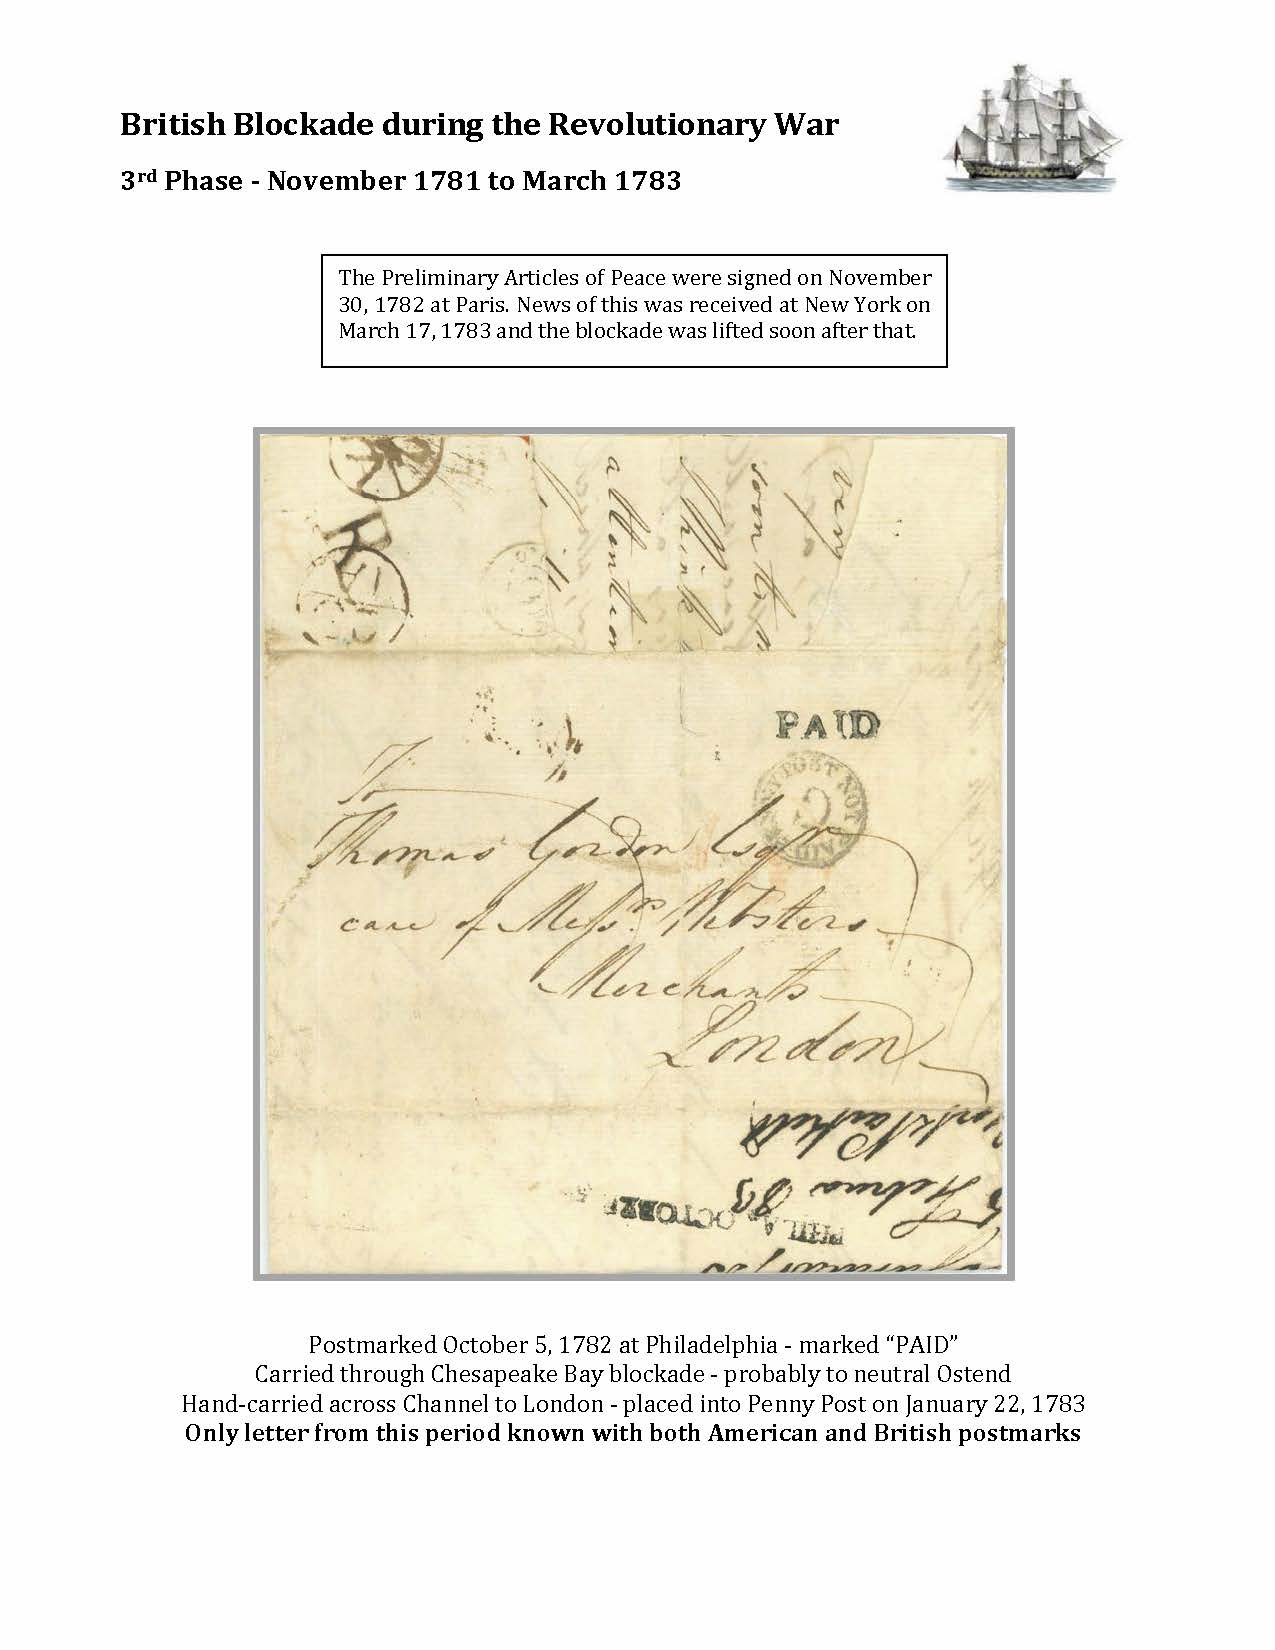 British Blockade during the Revolutionary War
3rd Phase - November 1781 to March 1783
The Preliminary Articles of Peace were signed on November
30, 1782 at Paris. News of this was received at New York on
March 17, 1783 and the blockade was lifted soon after that.
very
soon to
think
attention
PAID
PENNY POST NOT PAID
To
Thomas Gordon Esqr
care of Messrs. Websters
Merchants
London
PHILA. OCTOBER 5
Postmarked October 5, 1782 at Philadelphia - marked “PAID”
Carried through Chesapeake Bay blockade - probably to neutral Ostend
Hand-carried across Channel to London - placed into Penny Post on January 22, 1783
Only letter from this period known with both American and British postmarks